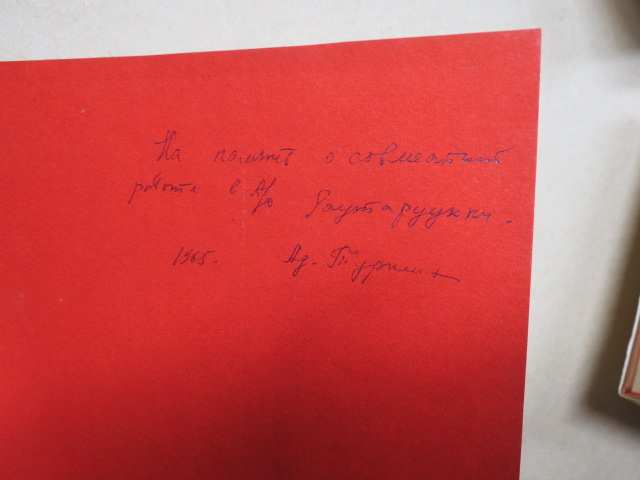 На память о совместной
работе в А/О Раутаруукки.
1965. Ад. Туркин